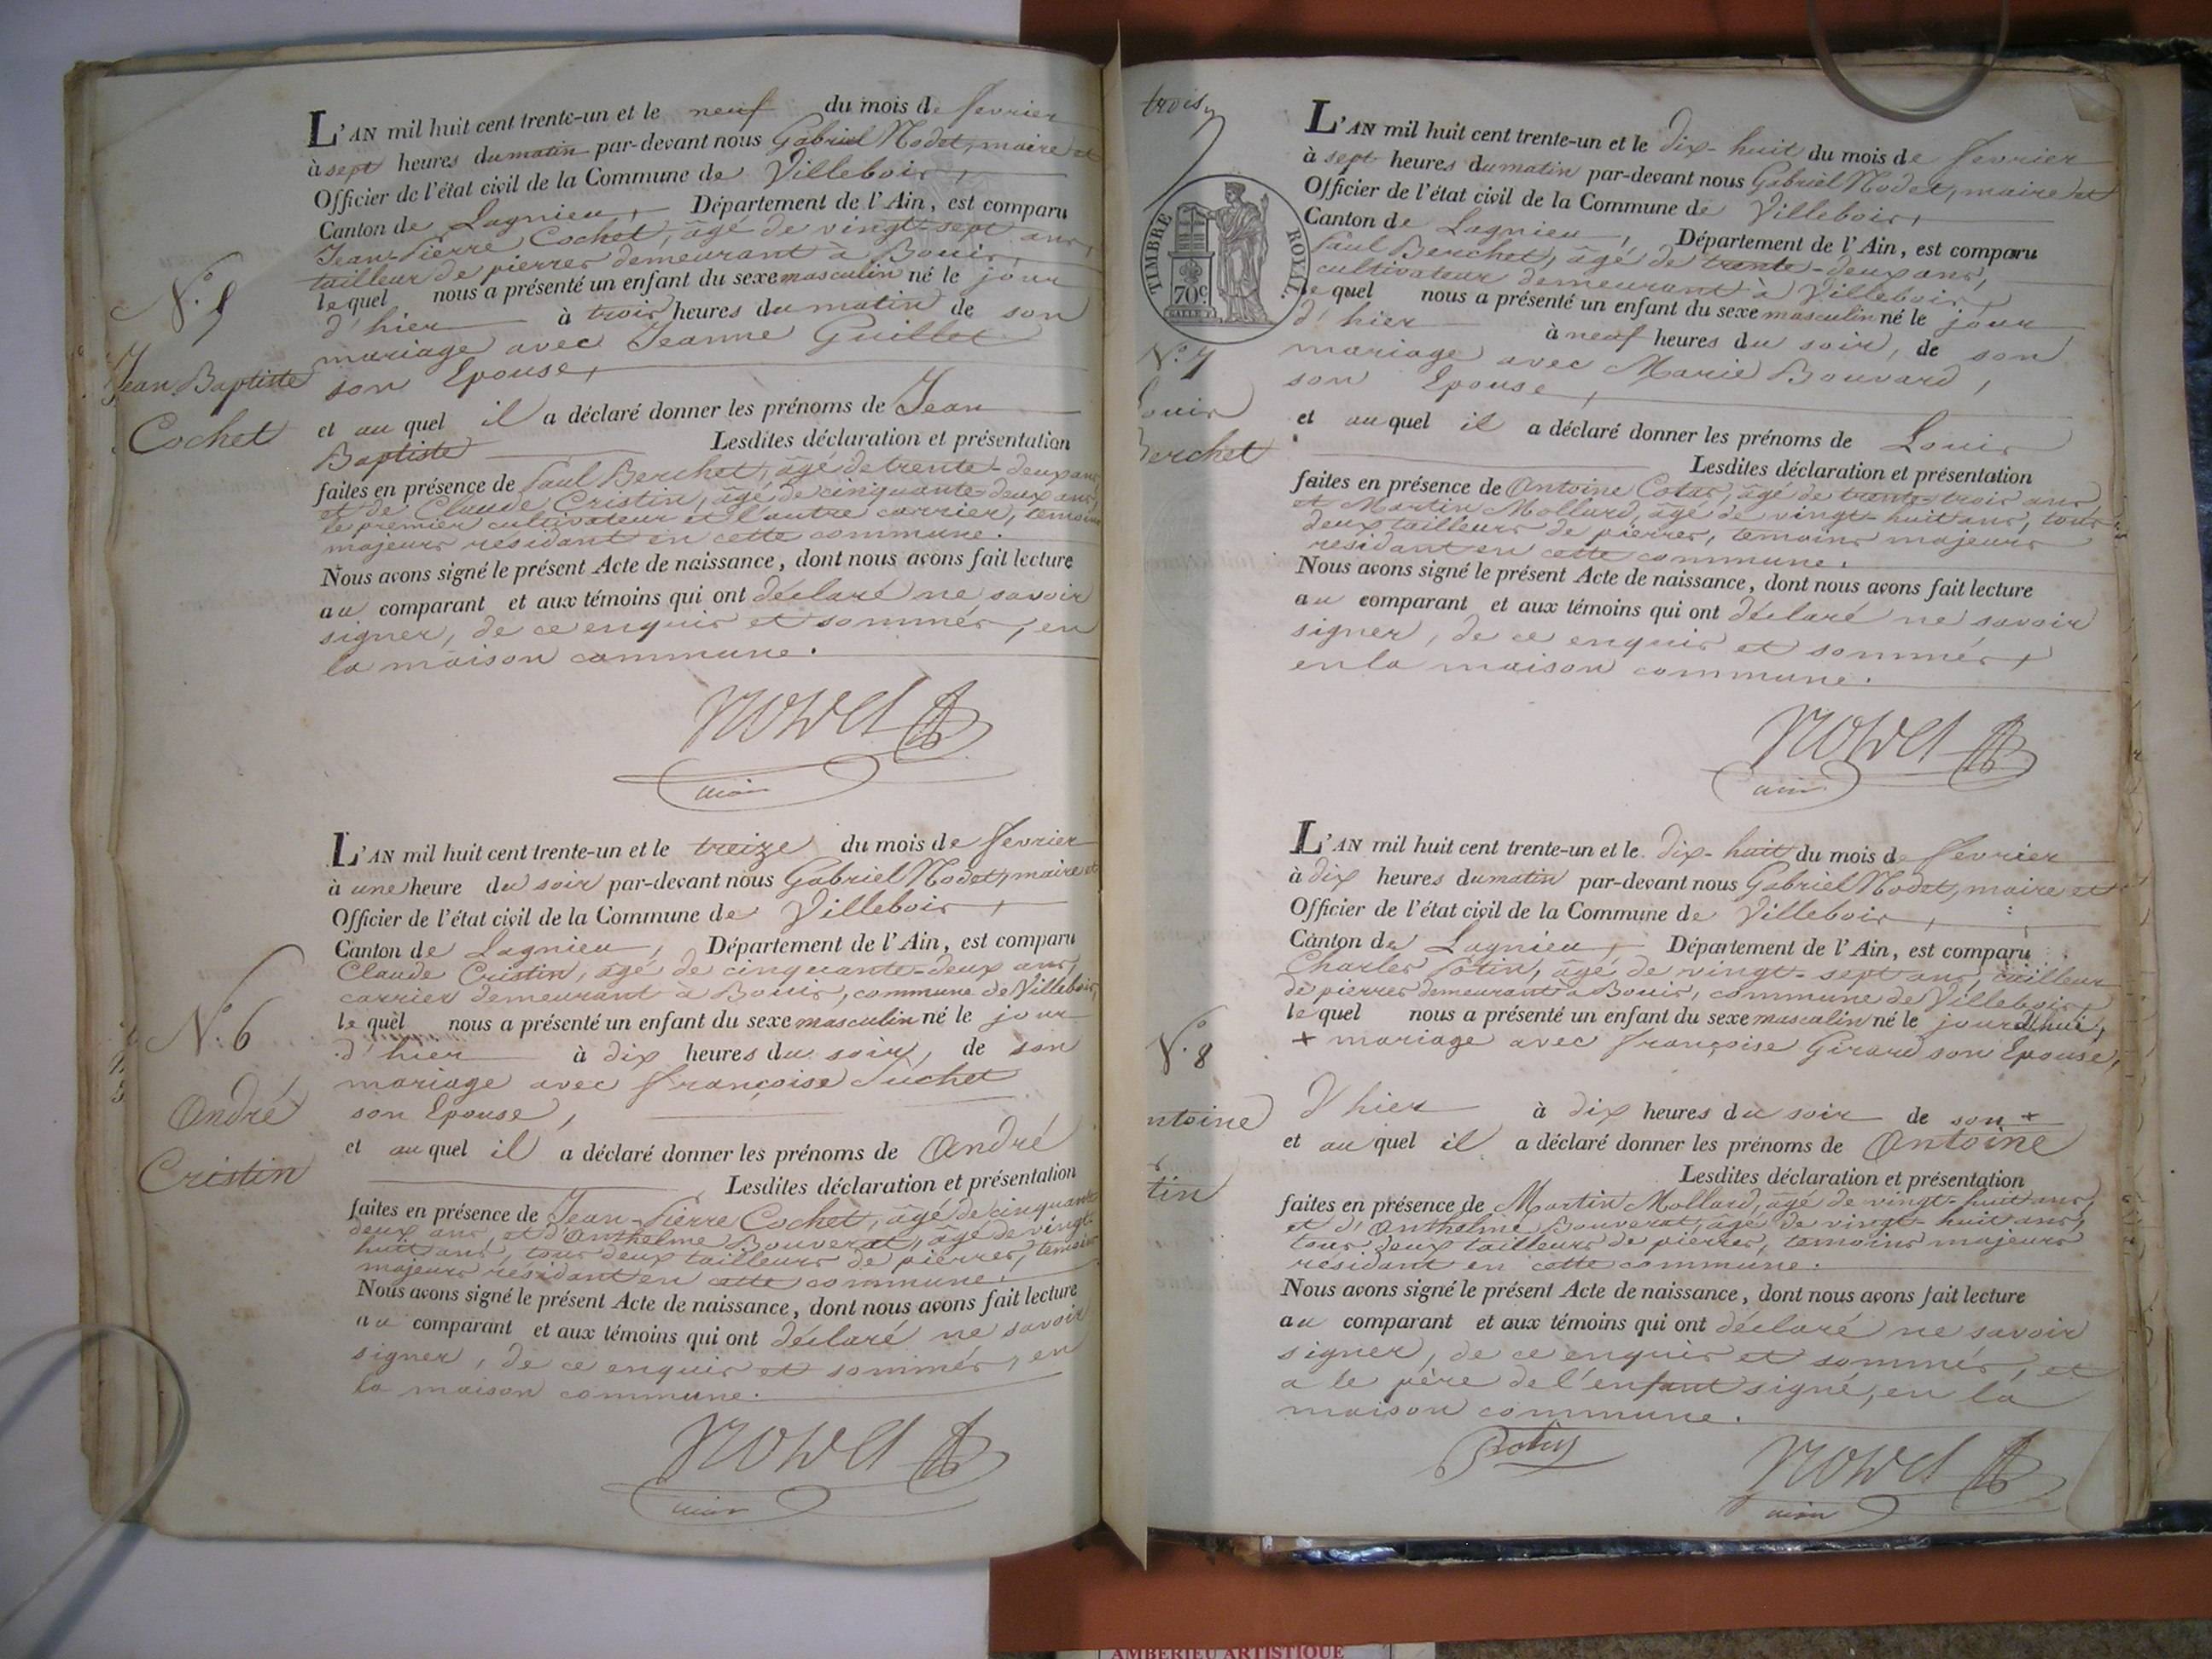 L'AN mil huit cent trente-un et le neuf du mois de fevrier
à sept heures du matin par-devant nous Gabriel Nodet, maire et
Officier de l'état civil de la Commune de Villebois,
Canton de Lagnieu, Département de l'Ain, est comparu
Jean-Pierre Cochet, âgé de vingt-sept ans,
tailleur de pierres demeurant à Bouis,
lequel nous a présenté un enfant du sexe masculin né le jour
d'hier à trois heures du matin de son
mariage avec Jeanne Guillet
son Epouse,
et au quel il a déclaré donner les prénoms de Jean
Baptiste Lesdites déclaration et présentation
faites en présence de Paul Berchet, âgé de trente-deux ans,
et de Claude Cristin, âgé de cinquante-deux ans,
le premier cultivateur et l'autre carrier, temoins
majeurs résidant en cette commune.
Nous avons signé le présent Acte de naissance, dont nous avons fait lecture
au comparant et aux témoins qui ont déclaré ne savoir
signer, de ce enquis et sommés, en
la maison commune.
Nodet
maire
N.º 5
Jean Baptiste
Cochet
L'AN mil huit cent trente-un et le treize du mois de fevrier
à une heure du soir par-devant nous Gabriel Nodet, maire et
Officier de l'état civil de la Commune de Villebois,
Canton de Lagnieu, Département de l'Ain, est comparu
Claude Cristin, âgé de cinquante-deux ans,
carrier demeurant à Bouis, commune de Villebois,
lequel nous a présenté un enfant du sexe masculin né le jour
d'hier à dix heures du soir, de son
mariage avec françoise Suchet
son Epouse,
et au quel il a déclaré donner les prénoms de André
Lesdites déclaration et présentation
faites en présence de Jean-Pierre Cochet, âgé de cinquante
deux ans, et d'Anthelme Bouverat, âgé de vingt-
huit ans, tous deux tailleurs de pierres, temoins
majeurs résidant en cette commune.
Nous avons signé le présent Acte de naissance, dont nous avons fait lecture
au comparant et aux témoins qui ont déclaré ne savoir
signer, de ce enquis et sommés, en
la maison commune.
Nodet
maire
N.º 6
André
Cristin
trois
TIMBRE ROYAL.
70c
L'AN mil huit cent trente-un et le dix-huit du mois de fevrier
à sept heures du matin par-devant nous Gabriel Nodet, maire et
Officier de l'état civil de la Commune de Villebois,
Canton de Lagnieu, Département de l'Ain, est comparu
Paul Berchet, âgé de trente-deux ans,
cultivateur demeurant à Villebois,
lequel nous a présenté un enfant du sexe masculin né le jour
d'hier à neuf heures du soir, de son
mariage avec Marie Bouvard,
son Epouse,
et au quel il a déclaré donner les prénoms de Louis
Lesdites déclaration et présentation
faites en présence de Antoine Cotas, âgé de trente-trois ans
et Martin Mollard, âgé de vingt-huit ans, tous
deux tailleurs de pierres, temoins majeurs
résidant en cette commune.
Nous avons signé le présent Acte de naissance, dont nous avons fait lecture
au comparant et aux témoins qui ont déclaré ne savoir
signer, de ce enquis et sommés,
en la maison commune.
Nodet
maire
N.º 7
Louis
Berchet
L'AN mil huit cent trente-un et le dix-huit du mois de fevrier
à dix heures du matin par-devant nous Gabriel Nodet, maire et
Officier de l'état civil de la Commune de Villebois,
Canton de Lagnieu, Département de l'Ain, est comparu
Charles Potin, âgé de vingt-sept ans, tailleur
de pierres demeurant à Bouis, commune de Villebois,
lequel nous a présenté un enfant du sexe masculin né le jour
+ mariage avec françoise Girard son Epouse,
d'hier à dix heures du soir de son +
et au quel il a déclaré donner les prénoms de Antoine
Lesdites déclaration et présentation
faites en présence de Martin Mollard, âgé de vingt-huit ans,
et d'Anthelme Bouverat, âgé de vingt-huit ans,
tous deux tailleurs de pierres, temoins majeurs
résidant en cette commune.
Nous avons signé le présent Acte de naissance, dont nous avons fait lecture
au comparant et aux témoins qui ont déclaré ne savoir
signer, de ce enquis et sommés, et
a le père de l'enfant signé, en la
maison commune.
Potin
Nodet
maire
N.º 8
ntoine
tin
AMBERIEU ARTISTIQUE